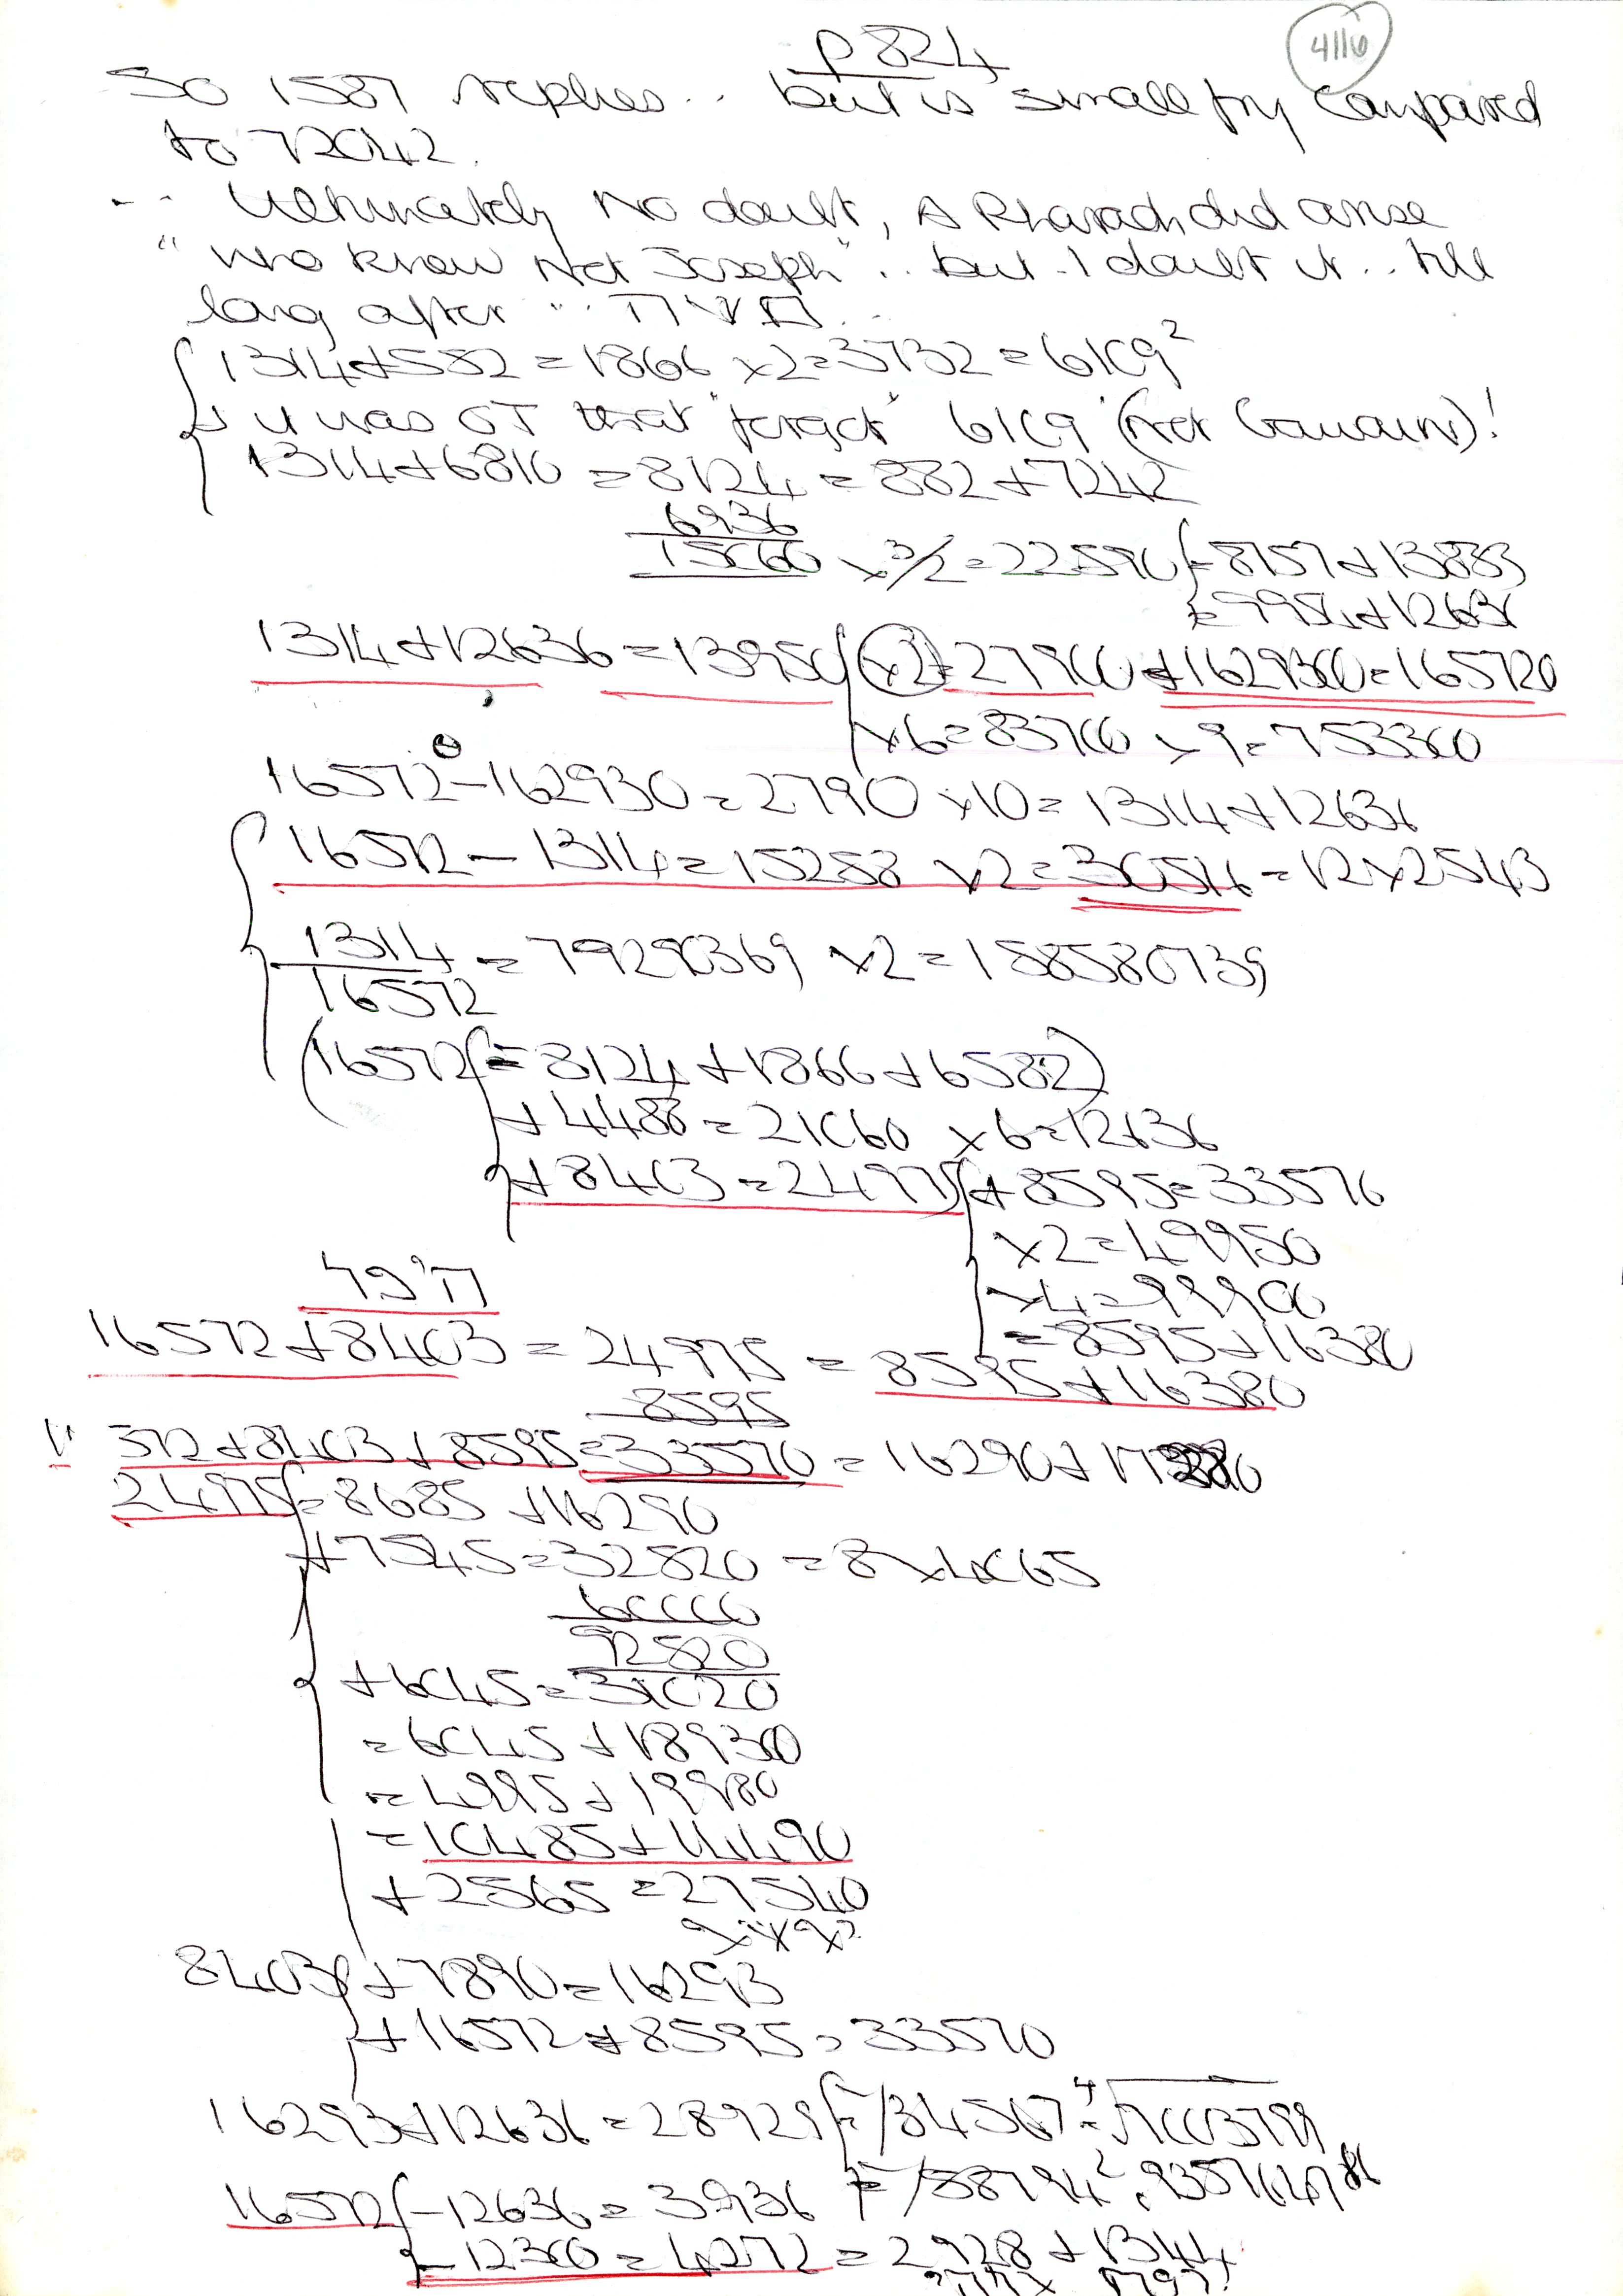 p 824
4116
So 1587 replies .. but is small fry compared
to 72042.
... Ultimately no doubt, A Pharaoh did arise
"who knew not Joseph" .. but I doubt it .. till
long after
1314+582=1866 ×2=3732=6109²
+ it was OT that "forgot" 6109 (not Gawain)!
1314+6810=8124=882+7242
6936
15060 ×3/2=22590 =8757+13833
=9954+12636
1314+12636=13950 ×2=27900 +162930=165720
×6=83700 ×9=753300
165720-162930=2790 ×10=1314+12636
16572-1314=15258 ×2=30516=12×2543
1314
16572
=79290369 ×2=158580739
(16572 =8124+1866+6582)
+4488=21060 ×6=12636
+8403=24975 +8595=33570
×2=49950
×4=99900
=8595+16380
16572+8403=24975=8595+16380
8595
572+8403+8595=33570=16290+17280
24975=8685+16290
+7545=32820=8×4065
60000
92820
+6045=31020
=6045+18930
=4995+19980
=10485+14490
+2565=27540
8403 +7890=16293
+16572+8595=33570
16293+12636=28929 =/34567⁴
16572 -12636=3936 =/58794²
-12300=4272=2928+1344